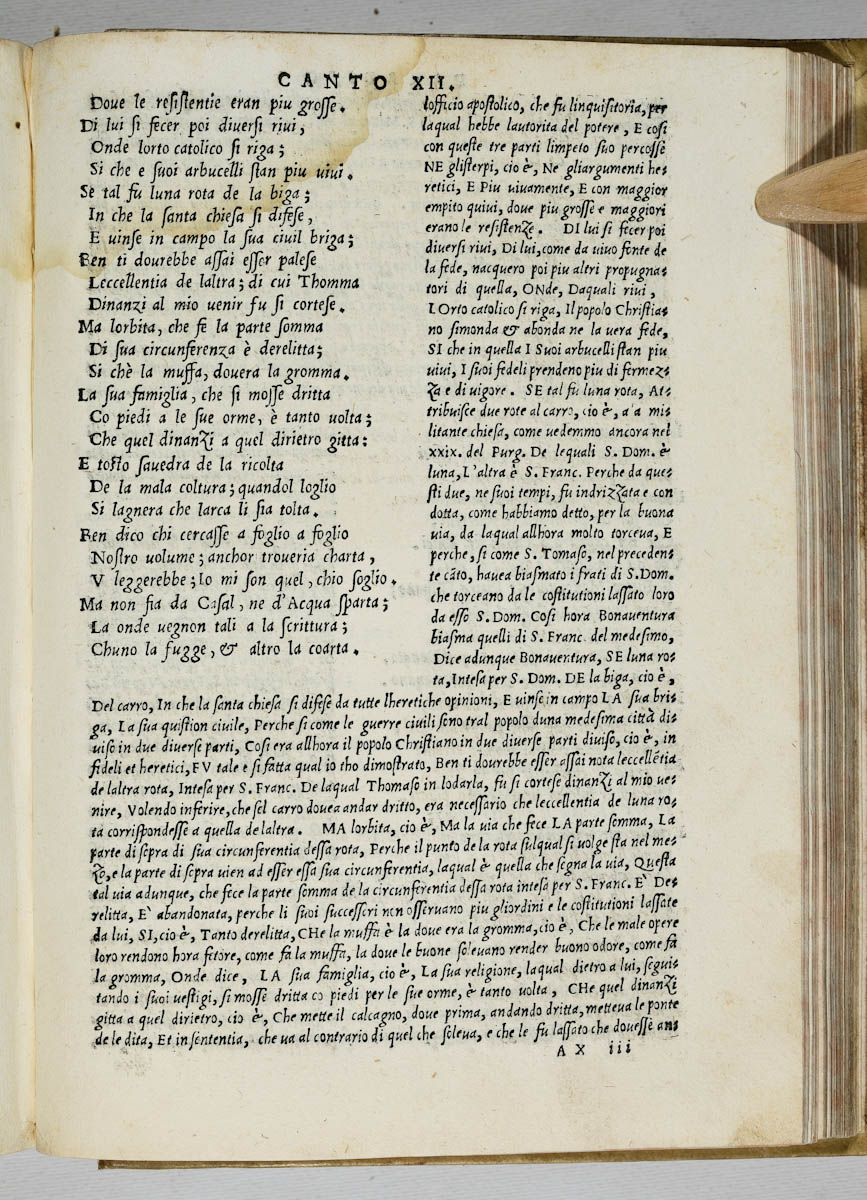 CANTO XII.
Doue le resistentie eran piu grosse.
Di lui si fecer poi diuersi riui,
Onde lorto catolico si riga;
Si che e suoi arbucelli stan piu uiui.
Se tal fu luna rota de la biga;
In che la santa chiesa si difese,
E uinse in campo la sua ciuil briga;
Ben ti dourebbe assai esser palese
Leccellentia de laltra; di cui Thomma
Dinanzi al mio uenir fu si cortese.
Ma lorbita, che fe la parte somma
Di sua circunferenza è derelitta;
Si chè la muffa, douera la gromma.
La sua famiglia, che si mosse dritta
Co piedi a le sue orme, è tanto uolta;
Che quel dinanzi a quel dirietro gitta:
E tosto sauedra de la ricolta
De la mala coltura; quandol loglio
Si lagnera che larca li sia tolta.
Ben dico chi cercasse a foglio a foglio
Nostro uolume; anchor troueria charta,
V leggerebbe; Io mi son quel, chio soglio.
Ma non fia da Casal, ne d'Acqua sparta;
La onde uegnon tali a la scrittura;
Chuno la fugge, & altro la coarta.
lofficio apostolico, che fu linquisitoria, per
laqual hebbe lautorita del potere, E cosi
con queste tre parti limpeto suo percosse
NE glisterpi, cio è, Ne gliargumenti he=
retici, E Piu uiuamente, E con maggior
empito quiui, doue piu grosse e maggiori
erano le resistenze. DI lui si fecer poi
diuersi riui, Di lui, come da uiuo fonte de
la fede, nacquero poi piu altri propugna=
tori di quella, ONde, Daquali riui,
LOrto catolico si riga, Il popolo Christia=
no simonda & abonda ne la uera fede,
SI che in quella I Suoi arbucelli stan piu
uiui, I suoi fedeli prendeno piu di fermez=
za e di uigore. SE tal fu luna rota, At=
tribuisce due rote al carro, cio è, a la mi=
litante chiesa, come uedemmo ancora nel
xxix. del Purg. De lequali S. Dom. è
luna, L'altra è S. Franc. Perche da que=
sti due, ne suoi tempi, fu indrizzata e con
dotta, come habbiamo detto, per la buona
uia, da laqual allhora molto torceua, E
perche, si come S. Tomaso, nel preceden=
te cāto, hauea biasmato i frati di S. Dom.
che torceano da le costitutioni lassato loro
da esso S. Dom. Cosi hora Bonauentura
biasma quelli di S. Franc. del medesimo,
Dice adunque Bonauentura, SE luna ro=
ta, Intesa per S. Dom. DE la biga, cio è,
Del carro, In che la santa chiesa si difese da tutte lheretiche opinioni, E uinse in campo LA sua bri=
ga, La sua quistion ciuile, Perche si come le guerre ciuili sono tral popolo duna medesima città di=
uiso in due diuerse parti, Cosi era allhora il popolo Christiano in due diuerse parti diuiso, cio è, in
fideli et heretici, FV tale e si fatta qual io tho dimostrato, Ben ti dourebbe esser assai nota leccellētia
de laltra rota, Intesa per S. Franc. De laqual Thomaso in lodarla, fu si cortese dinanzi al mio ue=
nire, Volendo inferire, che sel carro douea andar dritto, era necessario che leccellentia de luna ro=
ta corrispondesse a quella de laltra. MA lorbita, cio è, Ma la uia che fece LA parte somma, La
parte di sopra di sua circunferentia dessa rota, Perche il punto de la rota sulqual si uolge sta nel me=
zo, e la parte di sopra uien ad esser essa sua circunferentia, laqual è quella che segna la uia, Questa
tal uia adunque, che fece la parte somma de la circunferentia dessa rota intesa per S. Franc. E' De=
relitta, E' abandonata, perche li suoi successori non osseruano piu gliordini e le costitutioni lassate
da lui, SI, cio è, Tanto derelitta, CHe la muffa è la doue era la gromma, cio è, Che le male opere
loro rendono hora fetore, come fa la muffa, la doue le buone soleuano render buono odore, come fa
la gromma, Onde dice, LA sua famiglia, cio è, La sua religione, laqual dietro a lui, segui=
tando i suoi uestigi, si mosse dritta co piedi per le sue orme, è tanto uolta, CHe quel dinanzi
gitta a quel dirietro, cio è, Che mette il calcagno, doue prima, andando dritta, metteua le ponte
de le dita, Et in sententia, che ua al contrario di quel che soleua, e che le fu lassato che douesse an=
A X iii